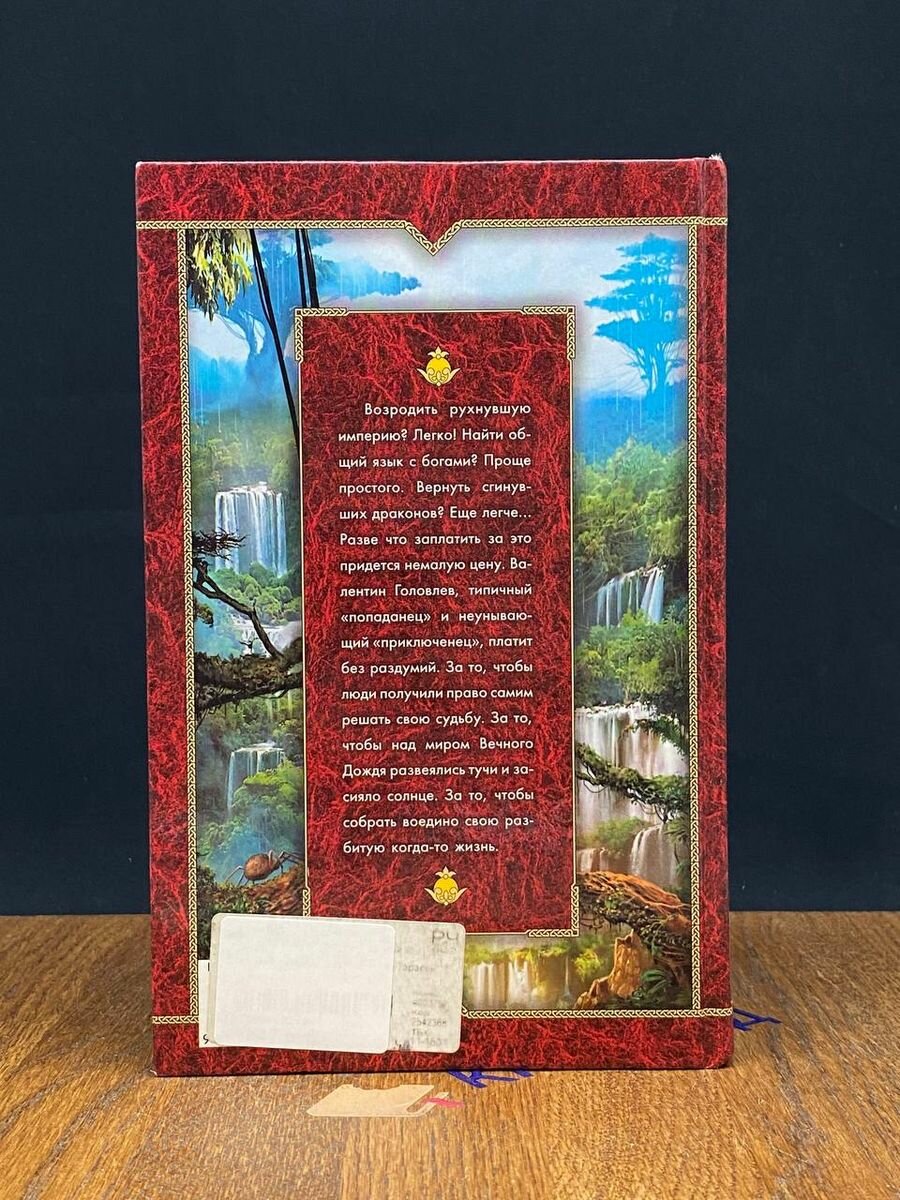 Возродить рухнувшую
империю? Легко! Найти об-
щий язык с богами? Проще
простого. Вернуть сгинув-
ших драконов? Еще легче...
Разве что заплатить за это
придется немалую цену. Ва-
лентин Головлев, типичный
«попаданец» и неунываю-
щий «приключенец», платит
без раздумий. За то, чтобы
люди получили право самим
решать свою судьбу. За то,
чтобы над миром Вечного
Дождя развеялись тучи и за-
сияло солнце. За то, чтобы
собрать воедино свою раз-
битую когда-то жизнь.